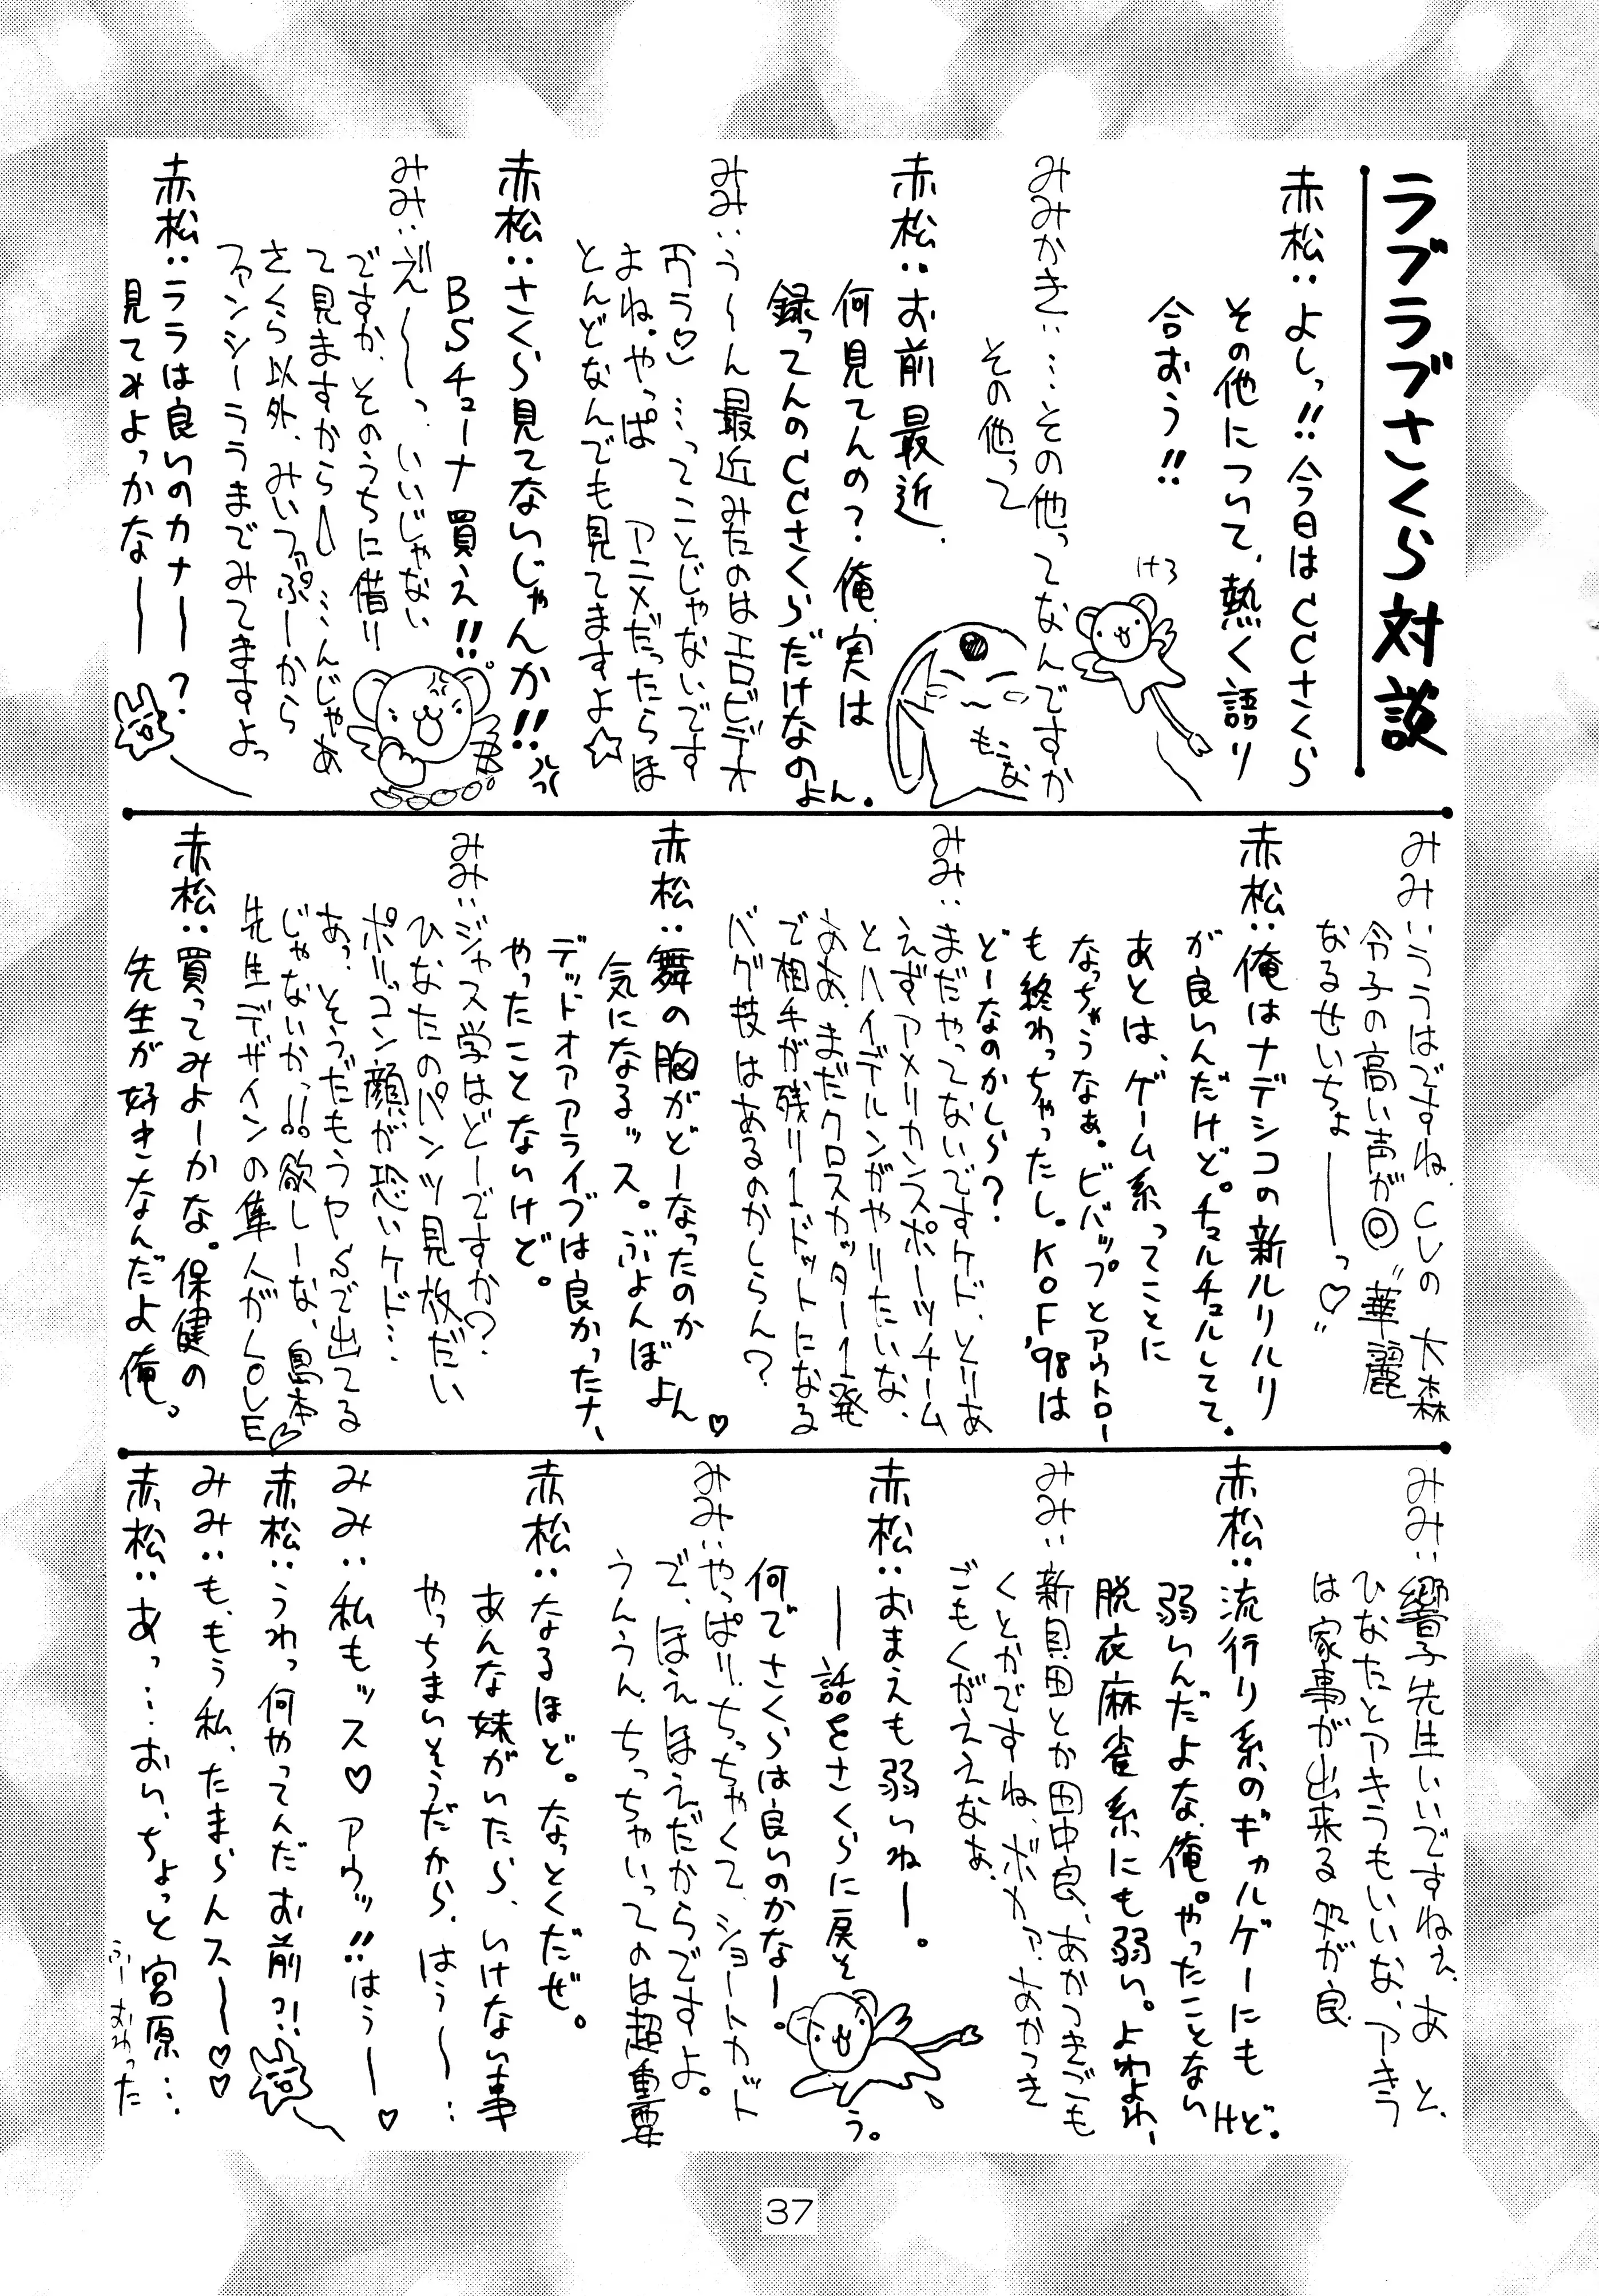 ラブラブさくら対説
赤松：よしっ!!今日はCCさくら
その他について、熱く語り
合おう!!
みみかき：…その他ってなんですか
その他って
けろ
もこな
赤松：お前最近、
何見てんの？俺、実は
録ってんのCCさくらだけなのよん。
みみ：う〜ん最近みたのはエロビデオ
…ってことじゃないです
よね。やっぱ アニメだったらほ
とんどなんでも見てますよ☆
赤松：さくら見てないじゃんか!!
BSチューナ買え!!
みみ：え〜っ、いいじゃない
ですか、そのうちに借り
て見ますから…んじゃあ
さくら以外、みいファぷーから
ファンシーララまでみてますよっ
赤松：ララは良いのカナー？
見てみよっかなー
みみ：ララはですね、CVの 大森
令子の高い声が◎"華麗
なるせいちょーっ♡"
赤松：俺はナデシコの新ルリルリ
が良いんだけど。チュルチュルしてて。
あとは、ゲーム系ってことに
なっちゃうなぁ。ビバップとアウトロー
も終わっちゃったし。KOF'98は
どーなのかしら？
みみ：まだやってないですケド、とりあ
えずアメリカンスポーツチーム
とハイデルンがやりたいな、
ああ、まだクロスカッター1発
で相手が残り1ドットになる
バグ技はあるのかしらん？
赤松：舞の胸がどーなったのか
気になるッス。ぷよんぼよん♡
デッドオアアライブは良かったナ、
やったことないけど。
みみ：ジャス学はどーですか？
ひなたのパンツ見放だい
ポリゴン顔が恐いケド…
あっ、そうだもうヤSで出てる
じゃないかっ!!欲しーな、島本
先生デザインの隼人がLOVE♡
赤松：買ってみよーかな。保健の
先生が好きなんだよ俺。
みみ：響子先生いいですねぇ、あと、
ひなたとアキラもいいな、アキラ
は家事が出来る処が良
赤松：流行り系のギャルゲーにも
弱いんだよな、俺。やったことないけど。
脱衣麻雀系にも弱い。よわよわ、
みみ：新貝田とか田中良、あかつきごも
くとかですね、ボカァ、あかつき
ごもくがええなぁ、
赤松：おまえも弱いねー。
ー話をさくらに戻そう。
何でさくらは良いのかなー。
みみ：やっぱり、ちっちゃくて、ショートカット
で、ほえほえだからですよ。
うんうん、ちっちゃいってのは超重要
赤松：なるほど。なっとくだぜ。
あんな妹がいたら、いけない事
やっちまいそうだから、はう〜…
みみ：私もッス♡アウッ!!はうー♡
赤松：うわっ何やってんだお前?!
みみ：も、もう私、たまらんスー♡♡
赤松：あっ…おい、ちょっと宮原…
37